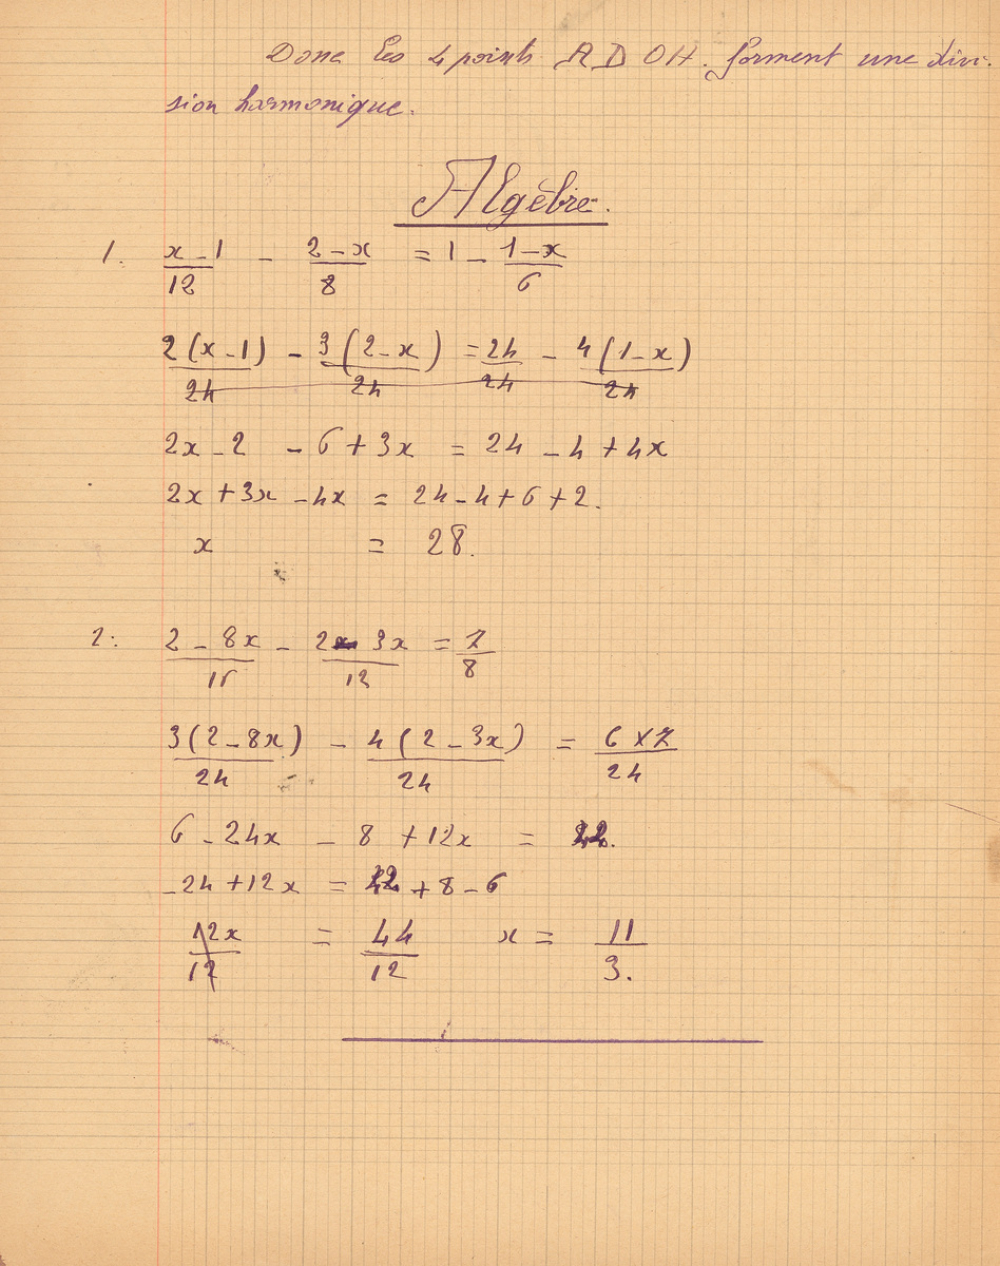 Donc les 4 points A D O H. forment une divi-
sion harmonique.
Algèbre.
1. (x - 1)/12 - (2 - x)/8 = 1 - (1 - x)/6
2(x - 1)/24 - 3(2 - x)/24 = 24/24 - 4(1 - x)/24
2x - 2 - 6 + 3x = 24 - 4 + 4x
2x + 3x - 4x = 24 - 4 + 6 + 2.
x = 28.
2: (2 - 8x)/ - (2 - 3x)/12 = 7/8
3(2 - 8x)/24 - 4(2 - 3x)/24 = 6 x 7/24
6 - 24x - 8 + 12x = 42.
- 24 + 12x = 42 + 8 - 6
12x/12 = 44/12 x = 11/3.